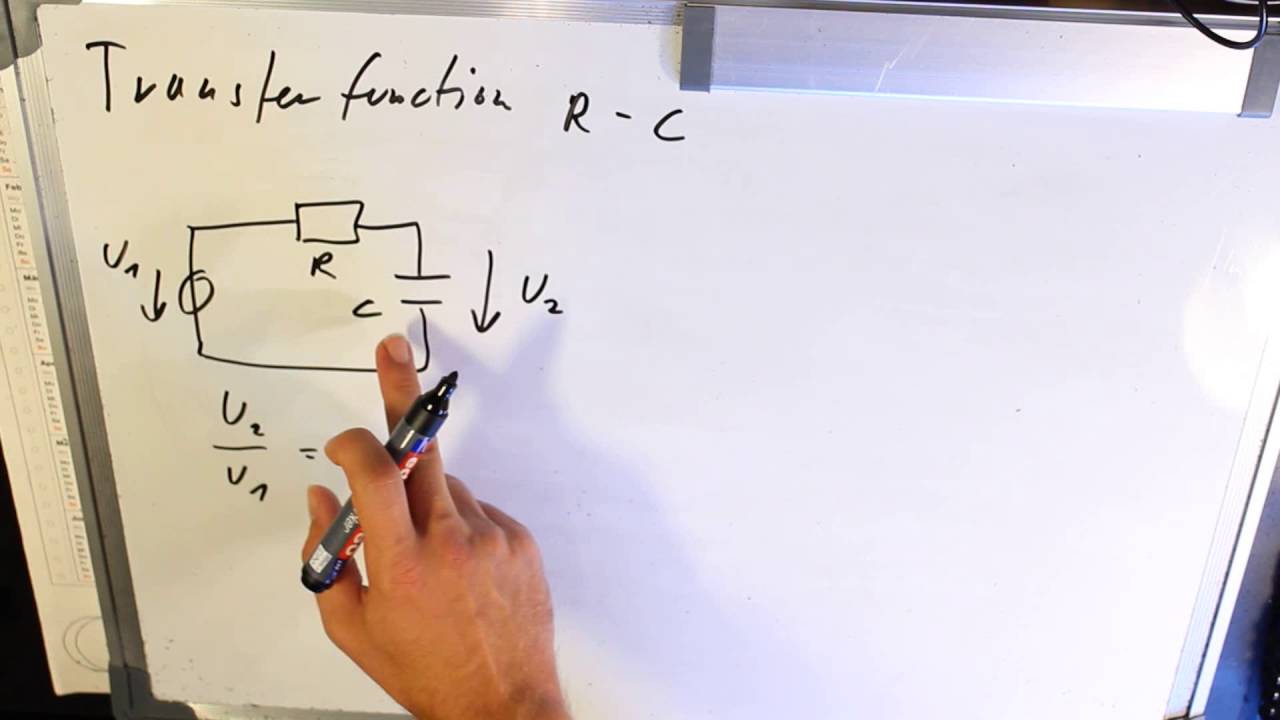 Transfer function R - C
U1
R
C
U2
U2
=
U1
Feb